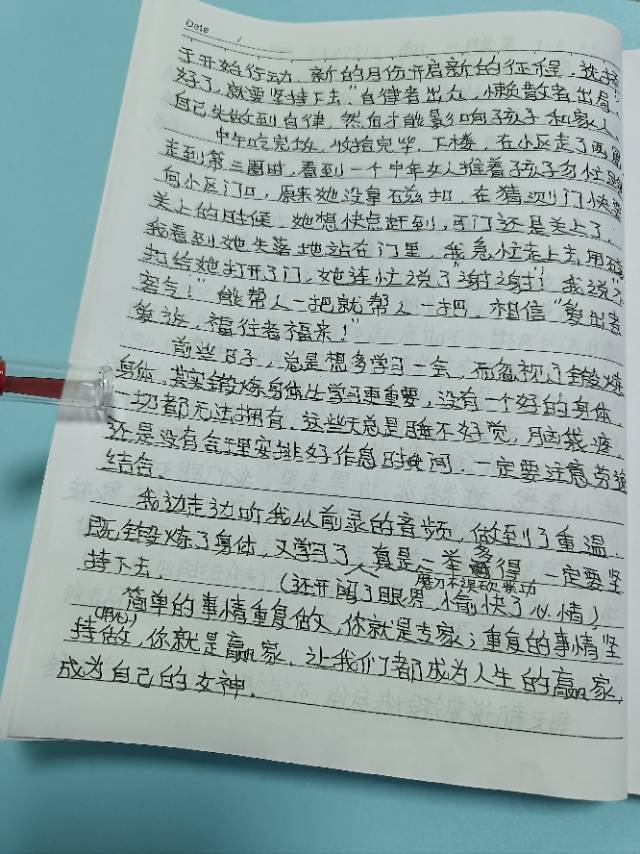 Date
于开始行动，新的月份开启新的征程，选择
好了，就要坚持下去"自律者出众，懒散者出局，
自己先做到自律，然后才能影响孩子和家人。
中午吃完饭，收拾完毕，下楼，在小区走了两圈
走到第三圈时，看到一个中年女人推着孩子匆忙
向小区门口，原来她没拿磁扣，在猜测门快要
关上的时候，她想快点赶到，可门还是关上了，
我看到她失落地站在门里，我急忙走上去用磁
扣给她打开了门，她连忙说了"谢谢"！我说"不
客气！"能帮人一把就帮人一把，相信"爱出者
爱返，福往者福来！"
前些日子，总是想多学习一会，而忽视了锻炼
身体，其实锻炼身体比学习更重要，没有一个好的身体，
一切都无法拥有，这些天总是睡不好觉，脑袋疼，
还是没有合理安排好作息时间，一定要注意劳逸
结合。
我边走边听我从前录的音频，做到了重温，
既锻炼了身体，又学习了，真是一举多得，一定要坚
持下去。
磨刀不误砍柴功
（还开阔了眼界，愉快了心情）
简单的事情重复做，你就是专家；重复的事情坚
（用心）
持做，你就是赢家，让我们都成为人生的赢家，
成为自己的女神。